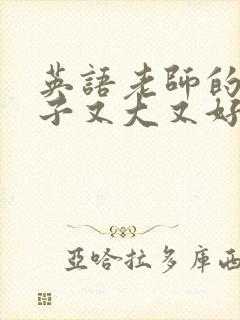 英語老師的
子又大又好
亞哈拉多庫西